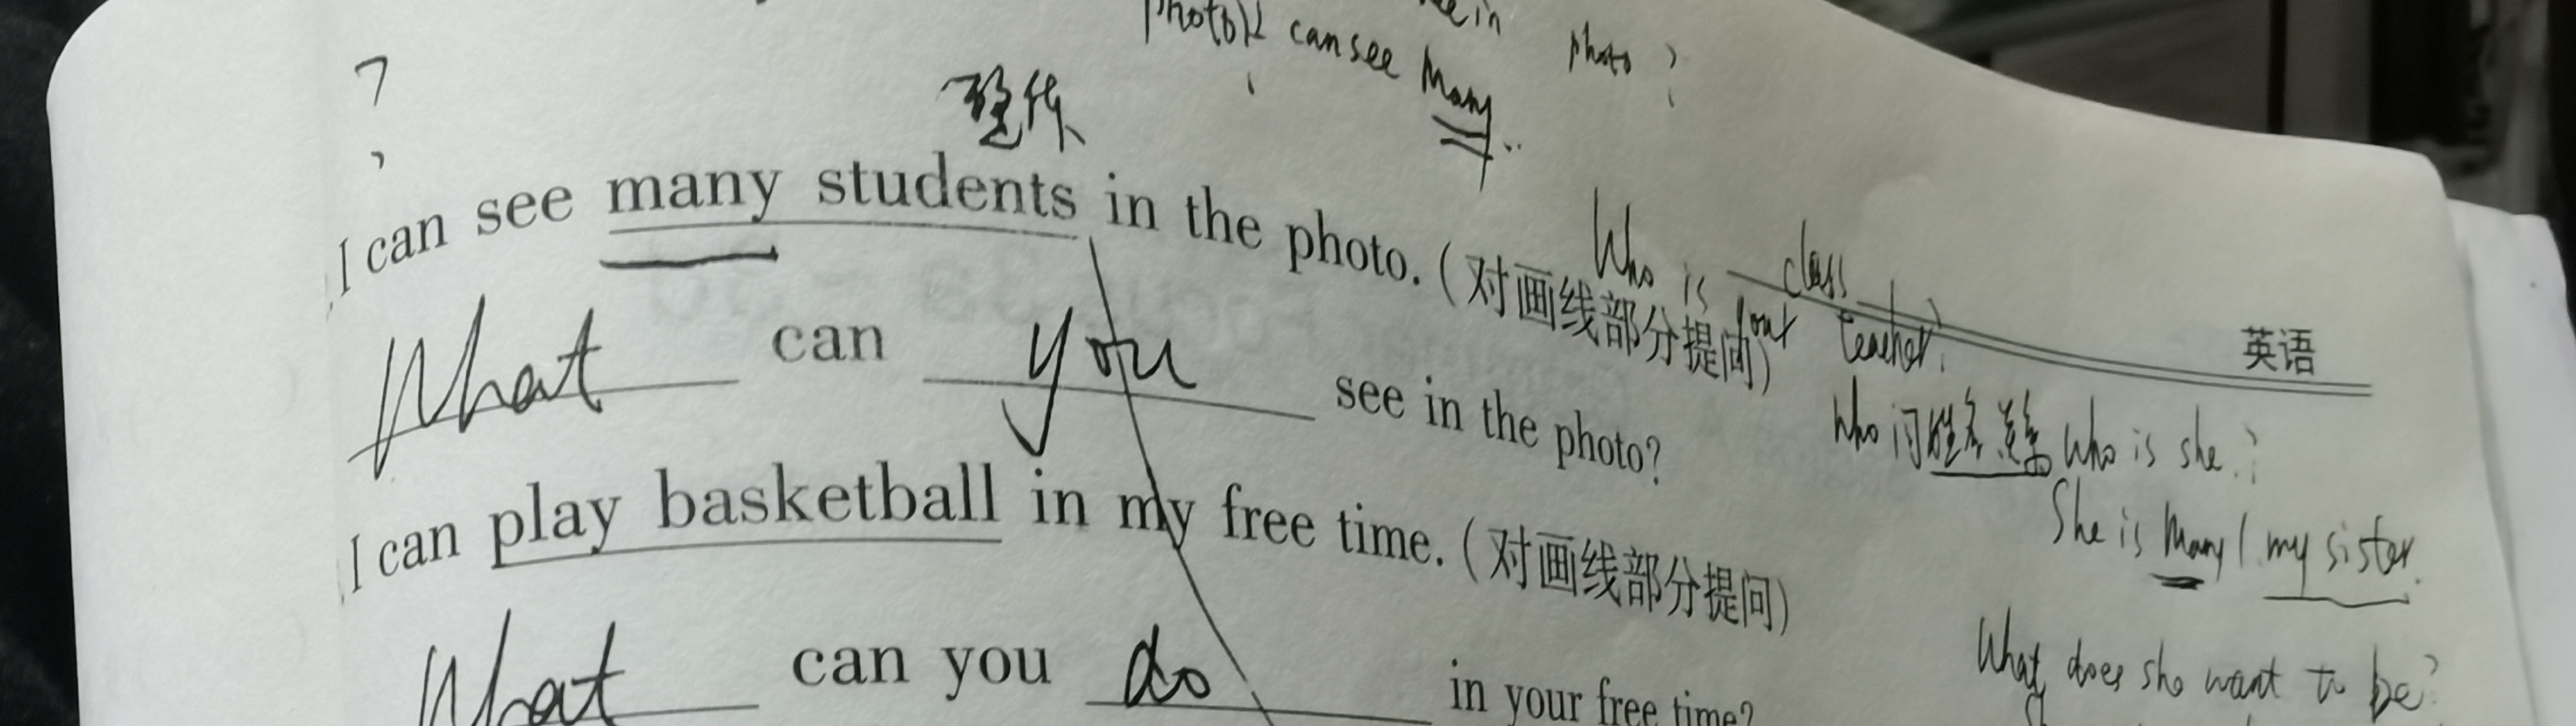 photo? I can see Many..
photo ?
?
整体
I can see many students in the photo. (对画线部分提问)
What can you see in the photo?
I can play basketball in my free time. (对画线部分提问)
What can you do in your free time?
Who is your class teacher?
英语
Who 问姓名 关系 Who is she?
She is Mary / my sister.
What does she want to be?